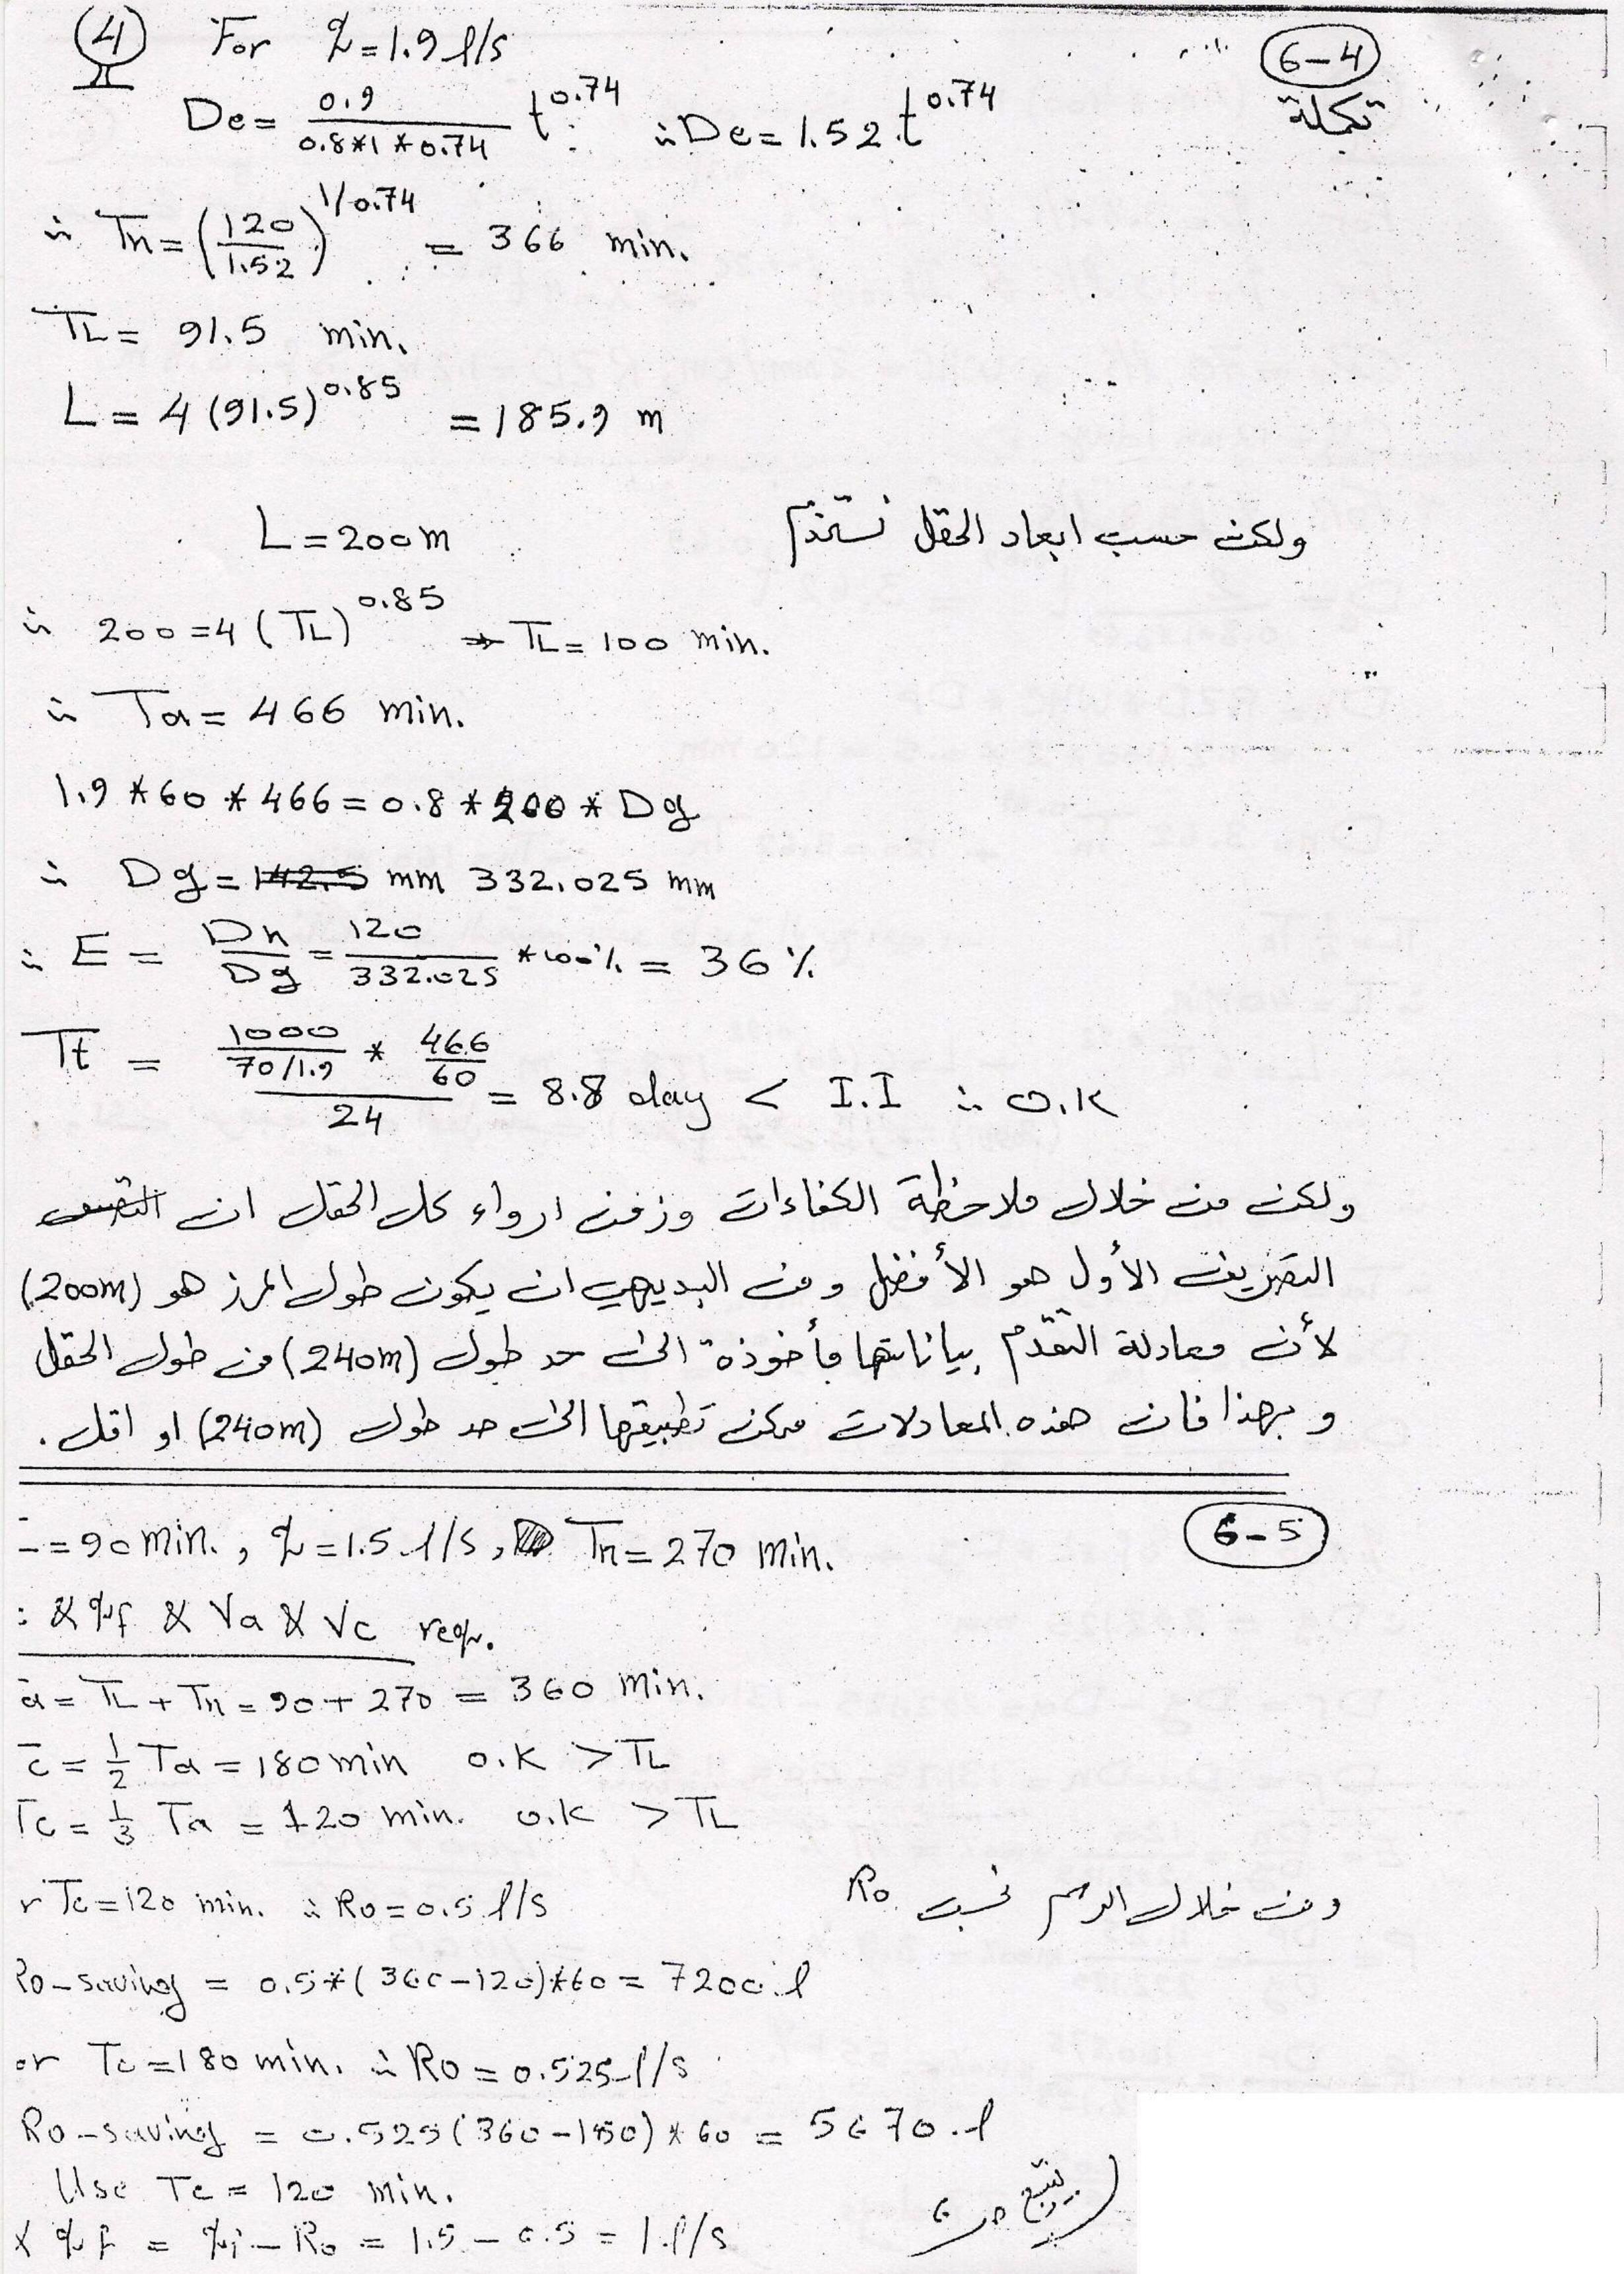 4 For q=1.9 l/s
6-4
تكملة
De = 0.9 / 0.8*1*0.74 t^0.74 ∴ De = 1.52 t^0.74
∴ Tn = (120/1.52)^1/0.74 = 366 min.
TL = 91.5 min.
L = 4 (91.5)^0.85 = 185.9 m
ولكن حسب ابعاد الحقل نستخدم L = 200m
∴ 200 = 4 (TL)^0.85 ⇒ TL = 100 min.
∴ Ta = 466 min.
1.9 * 60 * 466 = 0.8 * 200 * Dg
∴ Dg = 142.5 mm 332.025 mm
∴ E = Dn/Dg = 120/332.025 *100% = 36 %
Tt = (1000/(70/1.9) * 466/60) / 24 = 8.8 day < I.I ∴ O.K
ولكن من خلال ملاحظة الكفاءات وزمن ارواء كل الحقل ان
التصريف الأول هو الأفضل ومن البديهي ان يكون طول المرز هو (200m)
لأن معادلة التقدم بياناتها مأخوذة الى حد طول (240m) من طول الحقل
و بهذا فان هذه المعادلات ممكن تطبيقها الى حد طول (240m) او اقل .
6-5
= 90 min. , q = 1.5 l/s , Tn = 270 min.
: & qf & Va & Vc req.
a = TL + Tn = 90 + 270 = 360 min.
c = 1/2 Ta = 180 min o.k > TL
Tc = 1/3 Ta = 120 min. o.k > TL
ومن خلال الرسم نحسب Ro
r Tc = 120 min. ∴ Ro = 0.5 l/s
Ro-saving = 0.5*(360-120)*60 = 7200 l
or Tc = 180 min. ∴ Ro = 0.525 l/s
Ro-saving = 0.525(360-180)*60 = 5670 l
Use Tc = 120 min.
& qf = qi - Ro = 1.5 - 0.5 = 1 l/s
يتبع ص6